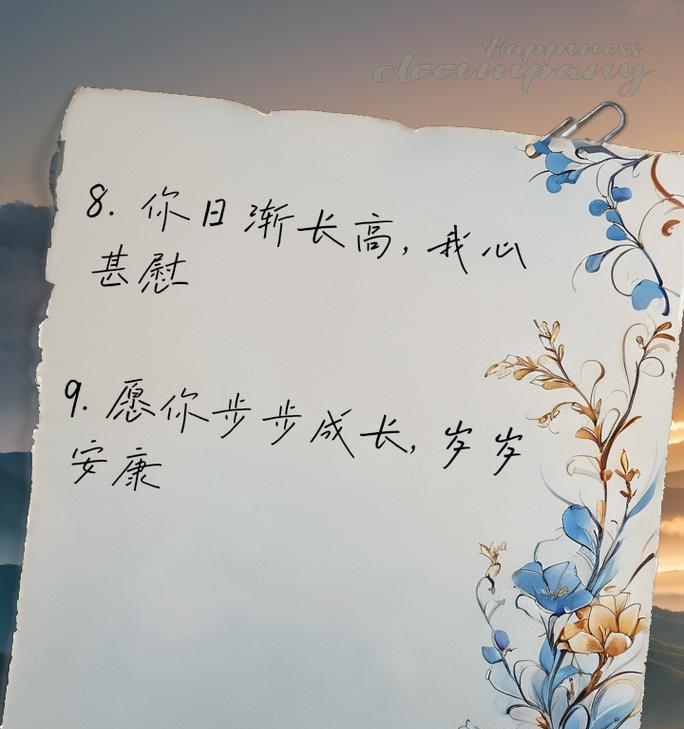 Happiness
Accompany
8. 你日渐长高, 我心
甚慰
9. 愿你步步成长, 岁岁
安康